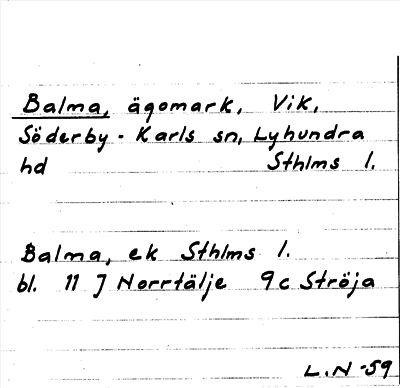 Balma, ägomark, Vik,
Söderby-Karls sn, Lyhundra
hd Sthlms l.
Balma, ek Sthlms l.
bl. 11 J Norrtälje 9c Ströja
L.N -59